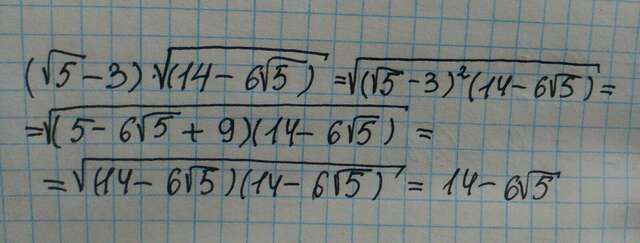 (√5 - 3) · √(14 - 6√5) = √((√5 - 3)²(14 - 6√5)) =
= √((5 - 6√5 + 9)(14 - 6√5)) =
= √((14 - 6√5)(14 - 6√5)) = 14 - 6√5